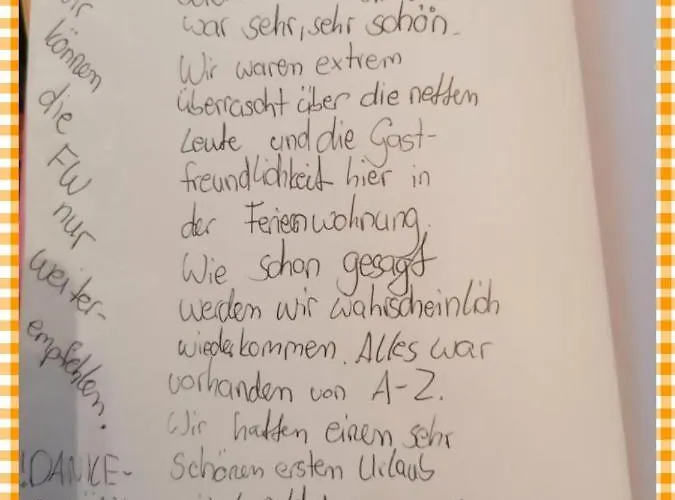 war sehr, sehr schön.
Wir waren extrem
überrascht über die netten
Leute und die Gast-
freundlichkeit hier in
der Ferienwohnung.
Wie schon gesagt
werden wir wahrscheinlich
wiederkommen. Alles war
vorhanden von A-Z.
Wir hatten einem sehr
Schönen erstem Urlaub
können
die
FW
nur
weiter-
empfehlen.
!DANKE-